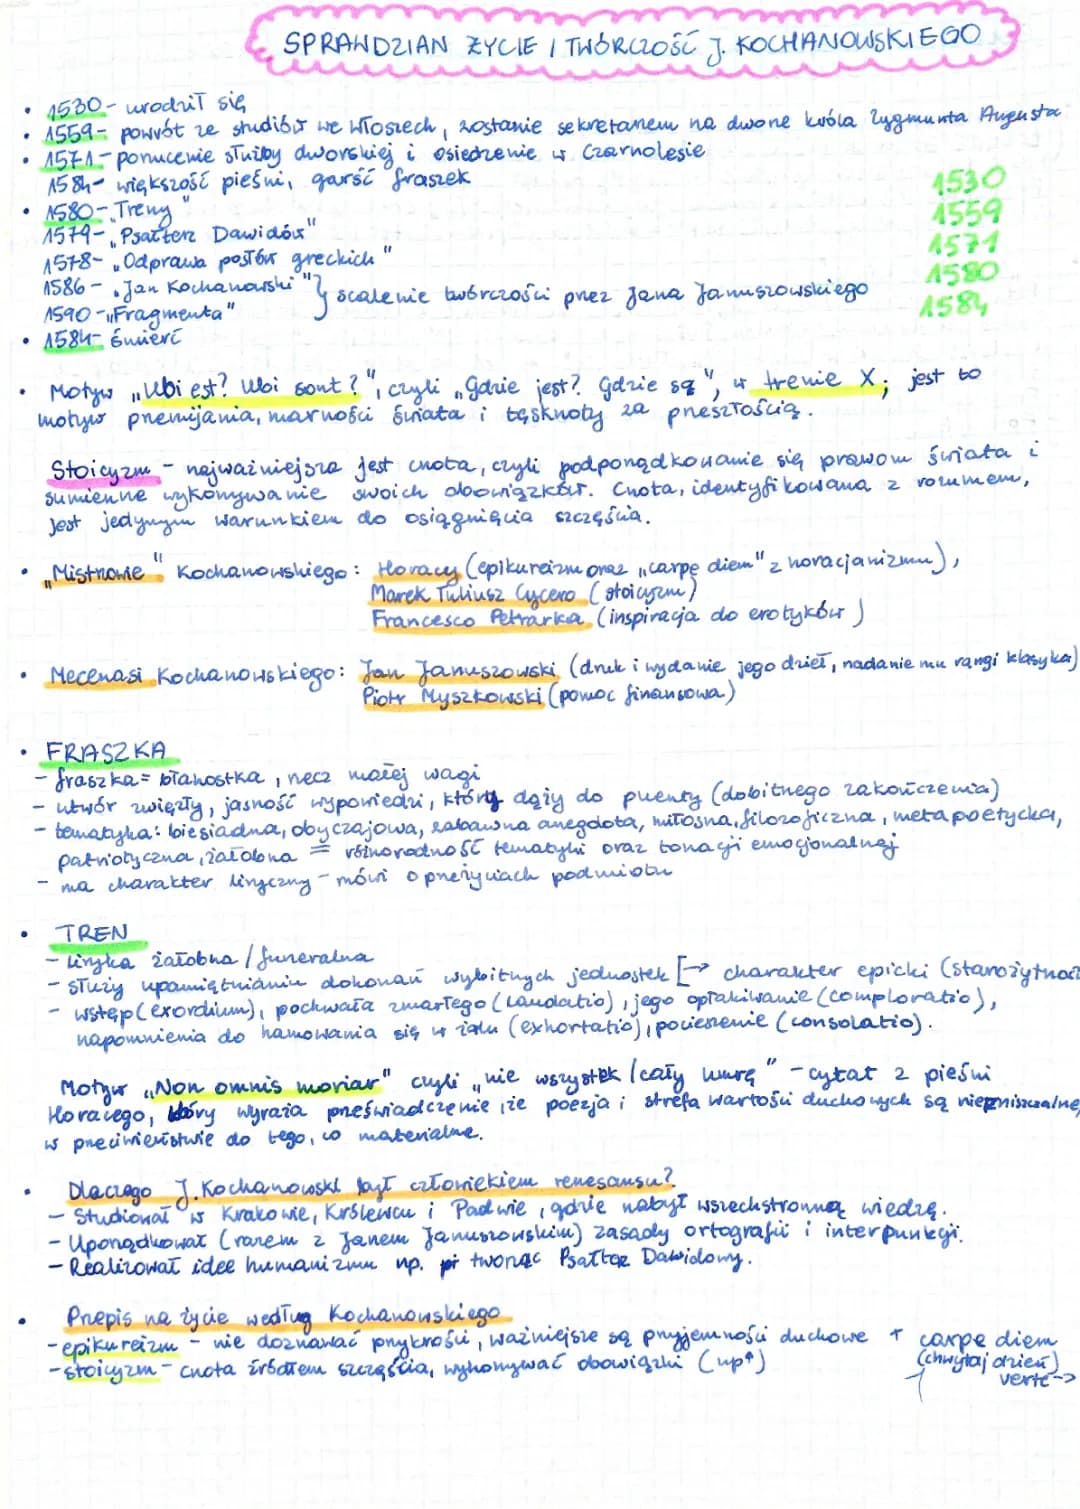 SPRAWDZIAN ŻYCIE I TWÓRCZOŚĆ J. KOCHANOWSKIEGO
• 1530 - urodził się
• 1559 - powrót ze studiów we Włoszech, zostanie sekretarzem na dworze króla Zygmunta Augusta
• 1571 - porzucenie służby dworskiej i osiedzenie w Czarnolesie
1584 - większość pieśni, garść fraszek
• 1580 - „Treny"
1579 - „Psałterz Dawidów"
1578 - „Odprawa posłów greckich"
1586 - „Jan Kochanowski" } scalenie twórczości przez Jana Januszowskiego
1590 - „Fragmenta"
• 1584 - śmierć
1530
1559
1571
1580
1584
• Motyw „Ubi est? Ubi sont?", czyli „Gdzie jest? Gdzie są", w trenie X; jest to
motyw przemijania, marności świata i tęsknoty za przeszłością.
Stoicyzm - najważniejsza jest cnota, czyli podporządkowanie się prawom świata i
sumienne wykonywanie swoich obowiązków. Cnota, identyfikowana z rozumem,
jest jedynym warunkiem do osiągnięcia szczęścia.
• „Mistrzowie" Kochanowskiego: Horacy (epikureizm oraz „carpe diem" z horacjanizmu),
Marek Tuliusz Cycero (stoicyzm)
Francesco Petrarka (inspiracja do erotyków)
• Mecenasi Kochanowskiego: Jan Januszowski (druk i wydanie jego dzieł, nadanie mu rangi klasyka)
Piotr Myszkowski (pomoc finansowa)
• FRASZKA
- fraszka = błahostka, rzecz małej wagi
- utwór zwięzły, jasność wypowiedzi, który dąży do puenty (dobitnego zakończenia)
- tematyka: biesiadna, obyczajowa, zabawna anegdota, miłosna, filozoficzna, metapoetycka,
patriotyczna, żałobna = różnorodność tematyki oraz tonacji emocjonalnej
- ma charakter liryczny - mówi o przeżyciach podmiotu
• TREN
- liryka żałobna / funeralna
- służy upamiętnianiu dokonań wybitnych jednostek [→ charakter epicki (starożytność
- wstęp (exordium), pochwała zmarłego (laudatio), jego opłakiwanie (comploratio),
napomnienia do hamowania się w żalu (exhortatio), pocieszenie (consolatio).
Motyw „Non omnis moriar" czyli „nie wszystek / cały umrę" - cytat z pieśni
Horacego, który wyraża przeświadczenie, że poezja i strefa wartości duchowych są niezniszczalne,
w przeciwieństwie do tego, co materialne.
• Dlaczego J. Kochanowski był człowiekiem renesansu?
- Studiował w Krakowie, Królewcu i Padwie, gdzie nabył wszechstronną wiedzę.
- Uporządkował (razem z Janem Januszowskim) zasady ortografii i interpunkcji.
- Realizował idee humanizmu np. tworząc Psałterz Dawidowy.
• Przepis na życie według Kochanowskiego
- epikureizm - nie doznawać przykrości, ważniejsze są przyjemności duchowe + carpe diem
(chwytaj dzień)
- stoicyzm - cnota źródłem szczęścia, wykonywać obowiązki (up↑)
verte →